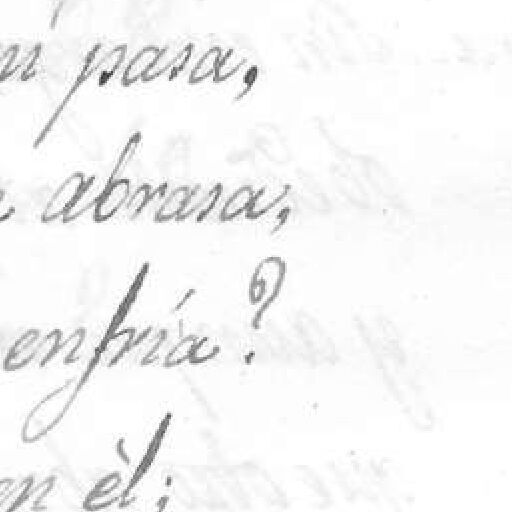 pasa,
abrasa,
enfría?
en èl;